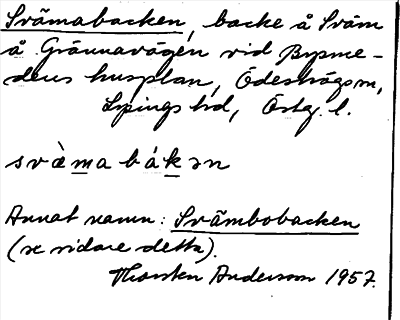 Svämabacken, backe å Sväm
å Grännavägen vid Bysme-
dens husplan, Ödeshögs sn,
Lysings hd, Östg. l.
svὰma bákən
Annat namn: Svämbobacken
(se vidare detta).
Thorsten Anderson 1957.